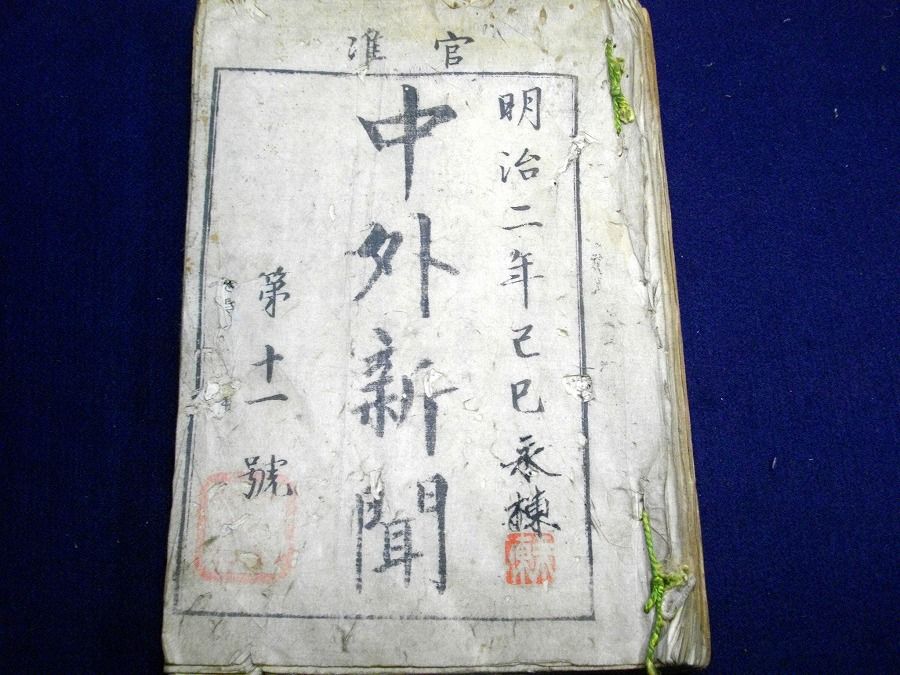 官准
明治二年己巳
中外新聞
第十一號